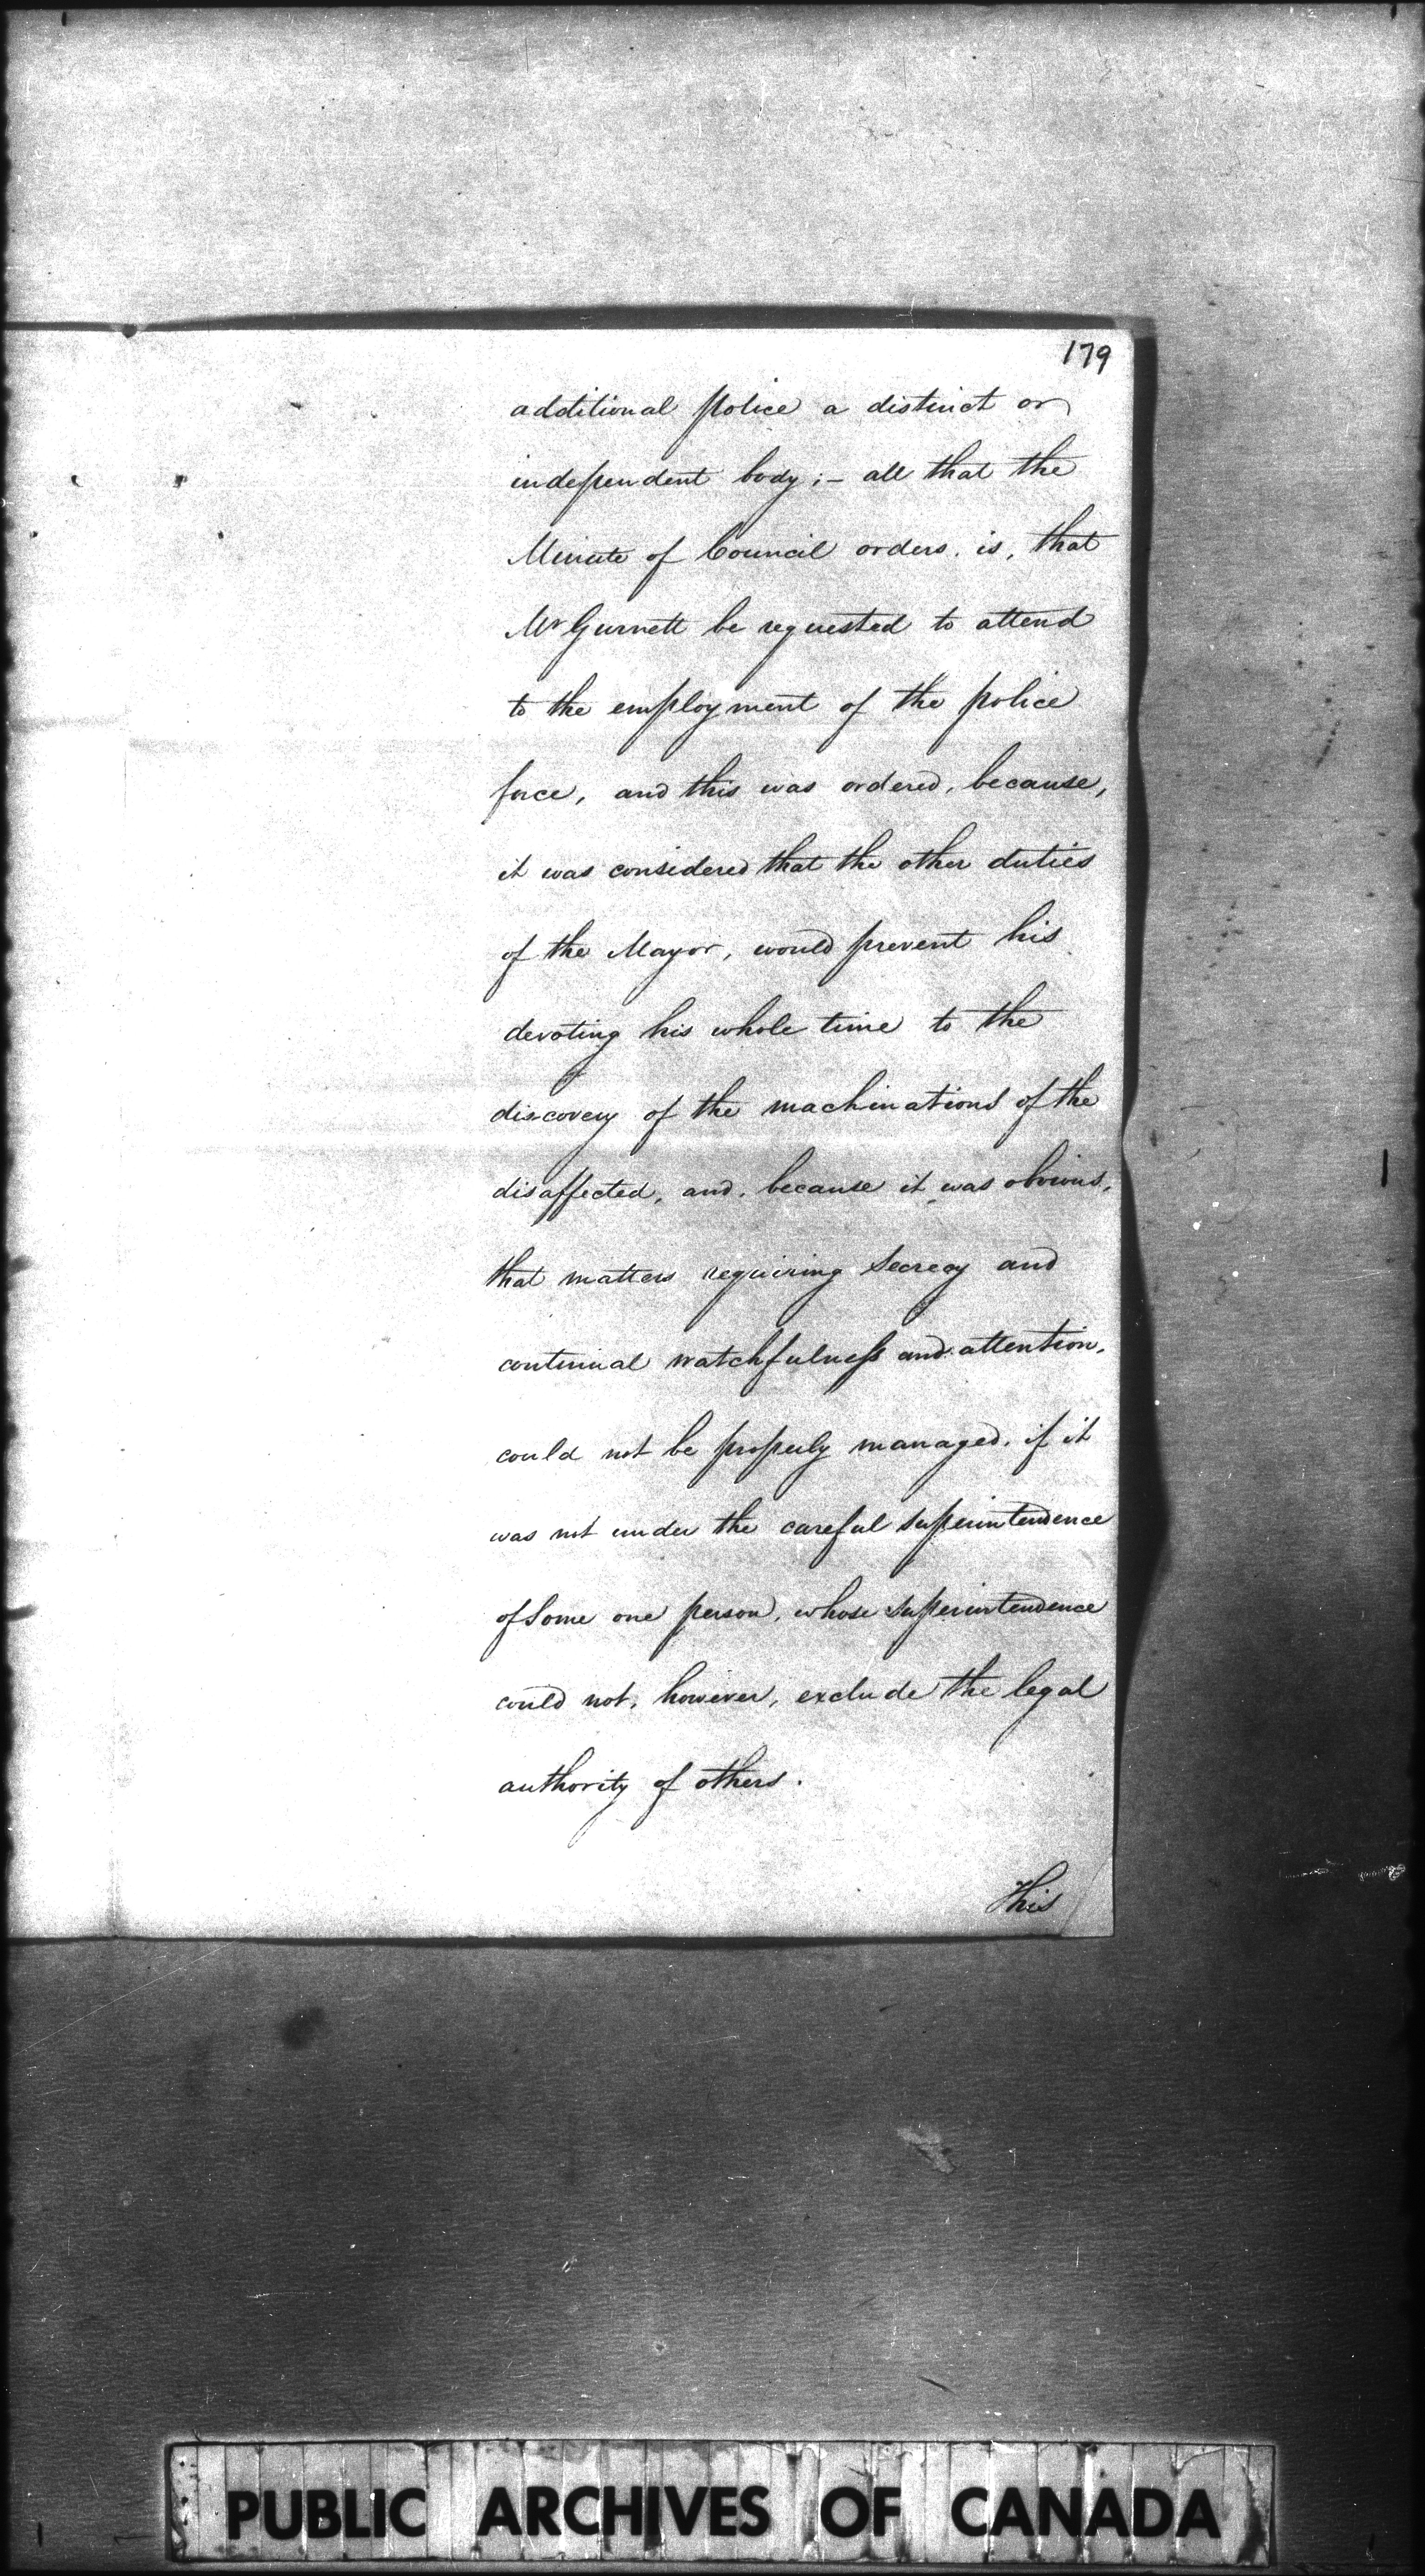 179
additional police a distinct or
independent body; – all that the
Minute of Council orders. is, that
Mr Gurnett be requested to attend
to the employment of the police
force, and this was ordered, because,
it was considered that the other duties
of the Mayor, would prevent his
devoting his whole time to the
discovery of the machinations of the
disaffected, and, because it was obvious,
that matters requiring Secrecy and
continual watchfulness and attention,
could not be properly managed, if it
was not under the careful superintendence
of Some one person, whose superintendence
could not, however, exclude the legal
authority of others.
This
PUBLIC ARCHIVES OF CANADA